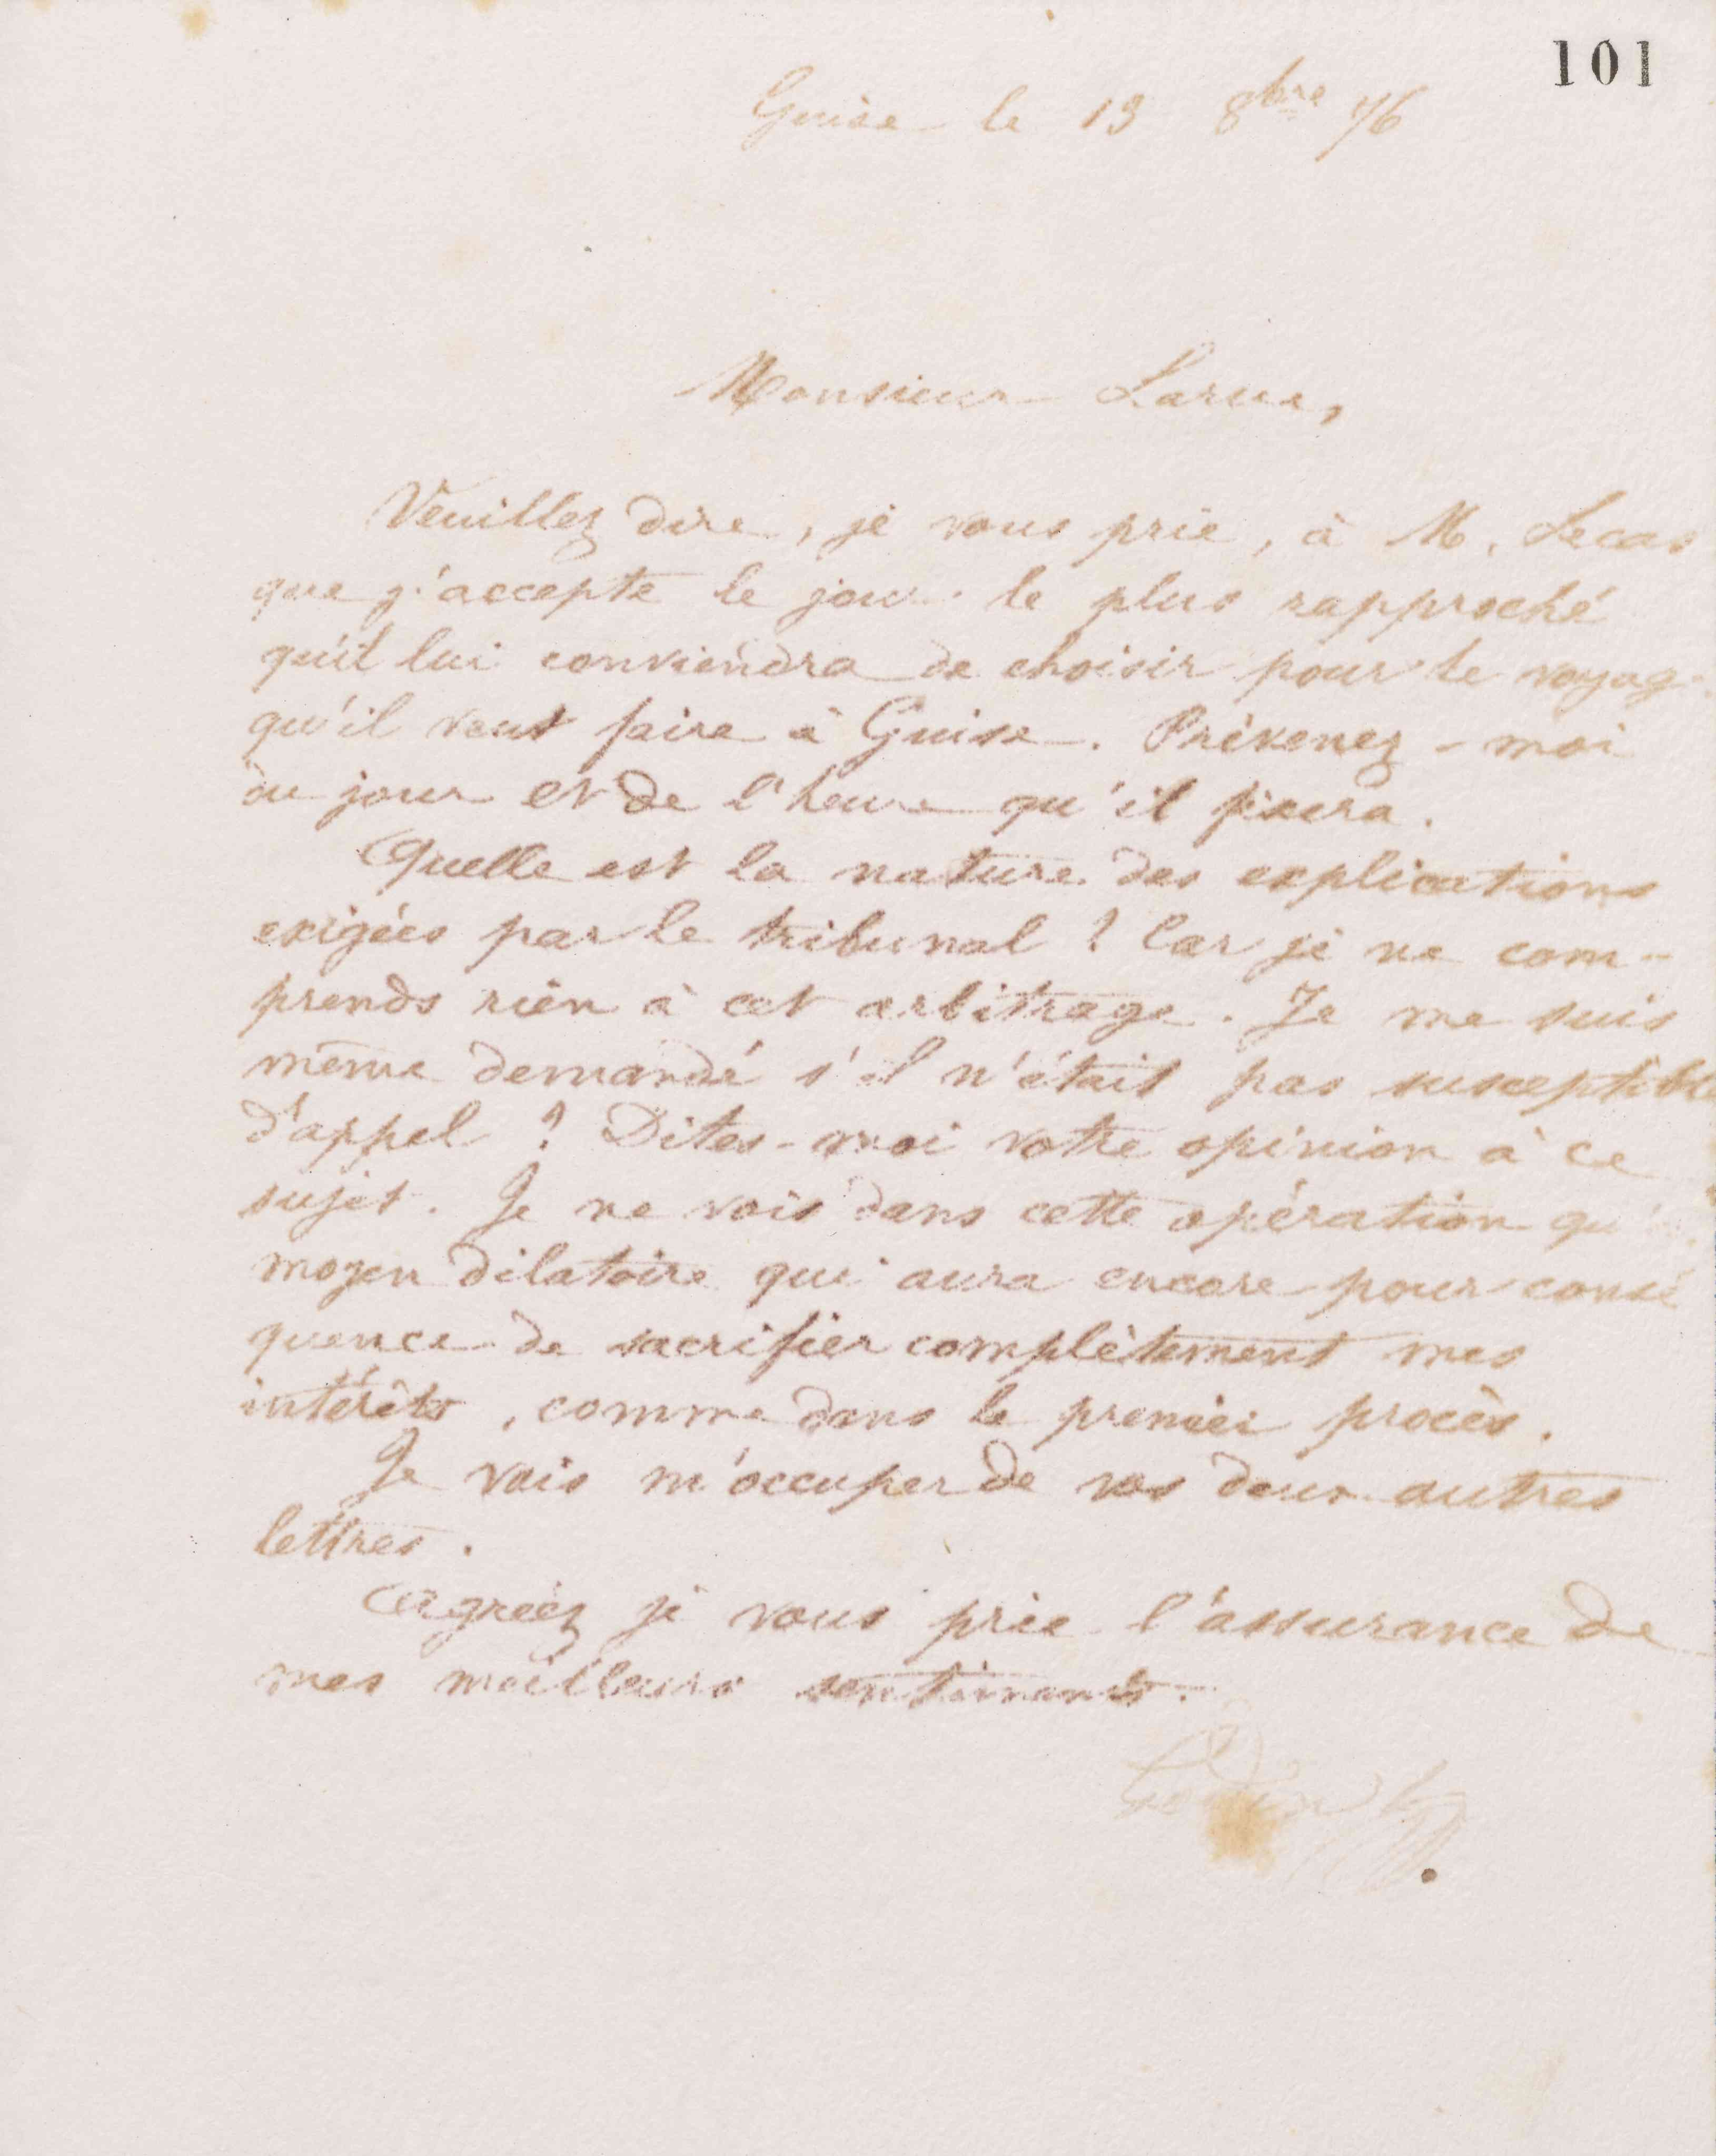 101
Guise le 19 8bre 76
Monsieur Larue,
Veuillez dire, je vous prie, à M. Lecas
que j'accepte le jour le plus rapproché
qu'il lui conviendra de choisir pour le voyag
qu'il veut faire à Guise. Prévenez-moi
du jour et de l'heure qu'il fixera.
Quelle est la nature des explications
exigées par le tribunal ? Car je ne com-
prends rien à cet arbitrage. Je me suis
même demandé s'il n'était pas susceptible
d'appel ? Dites-moi votre opinion à ce
sujet. Je ne vois dans cette opération qu'
moyen dilatoire qui aura encore pour consé
quence de sacrifier complètement mes
intérêts, comme dans le premier procès.
Je vais m'occuper de vos deux autres
lettres.
Agréez je vous prie l'assurance de
mes meilleurs sentiments.
Godin